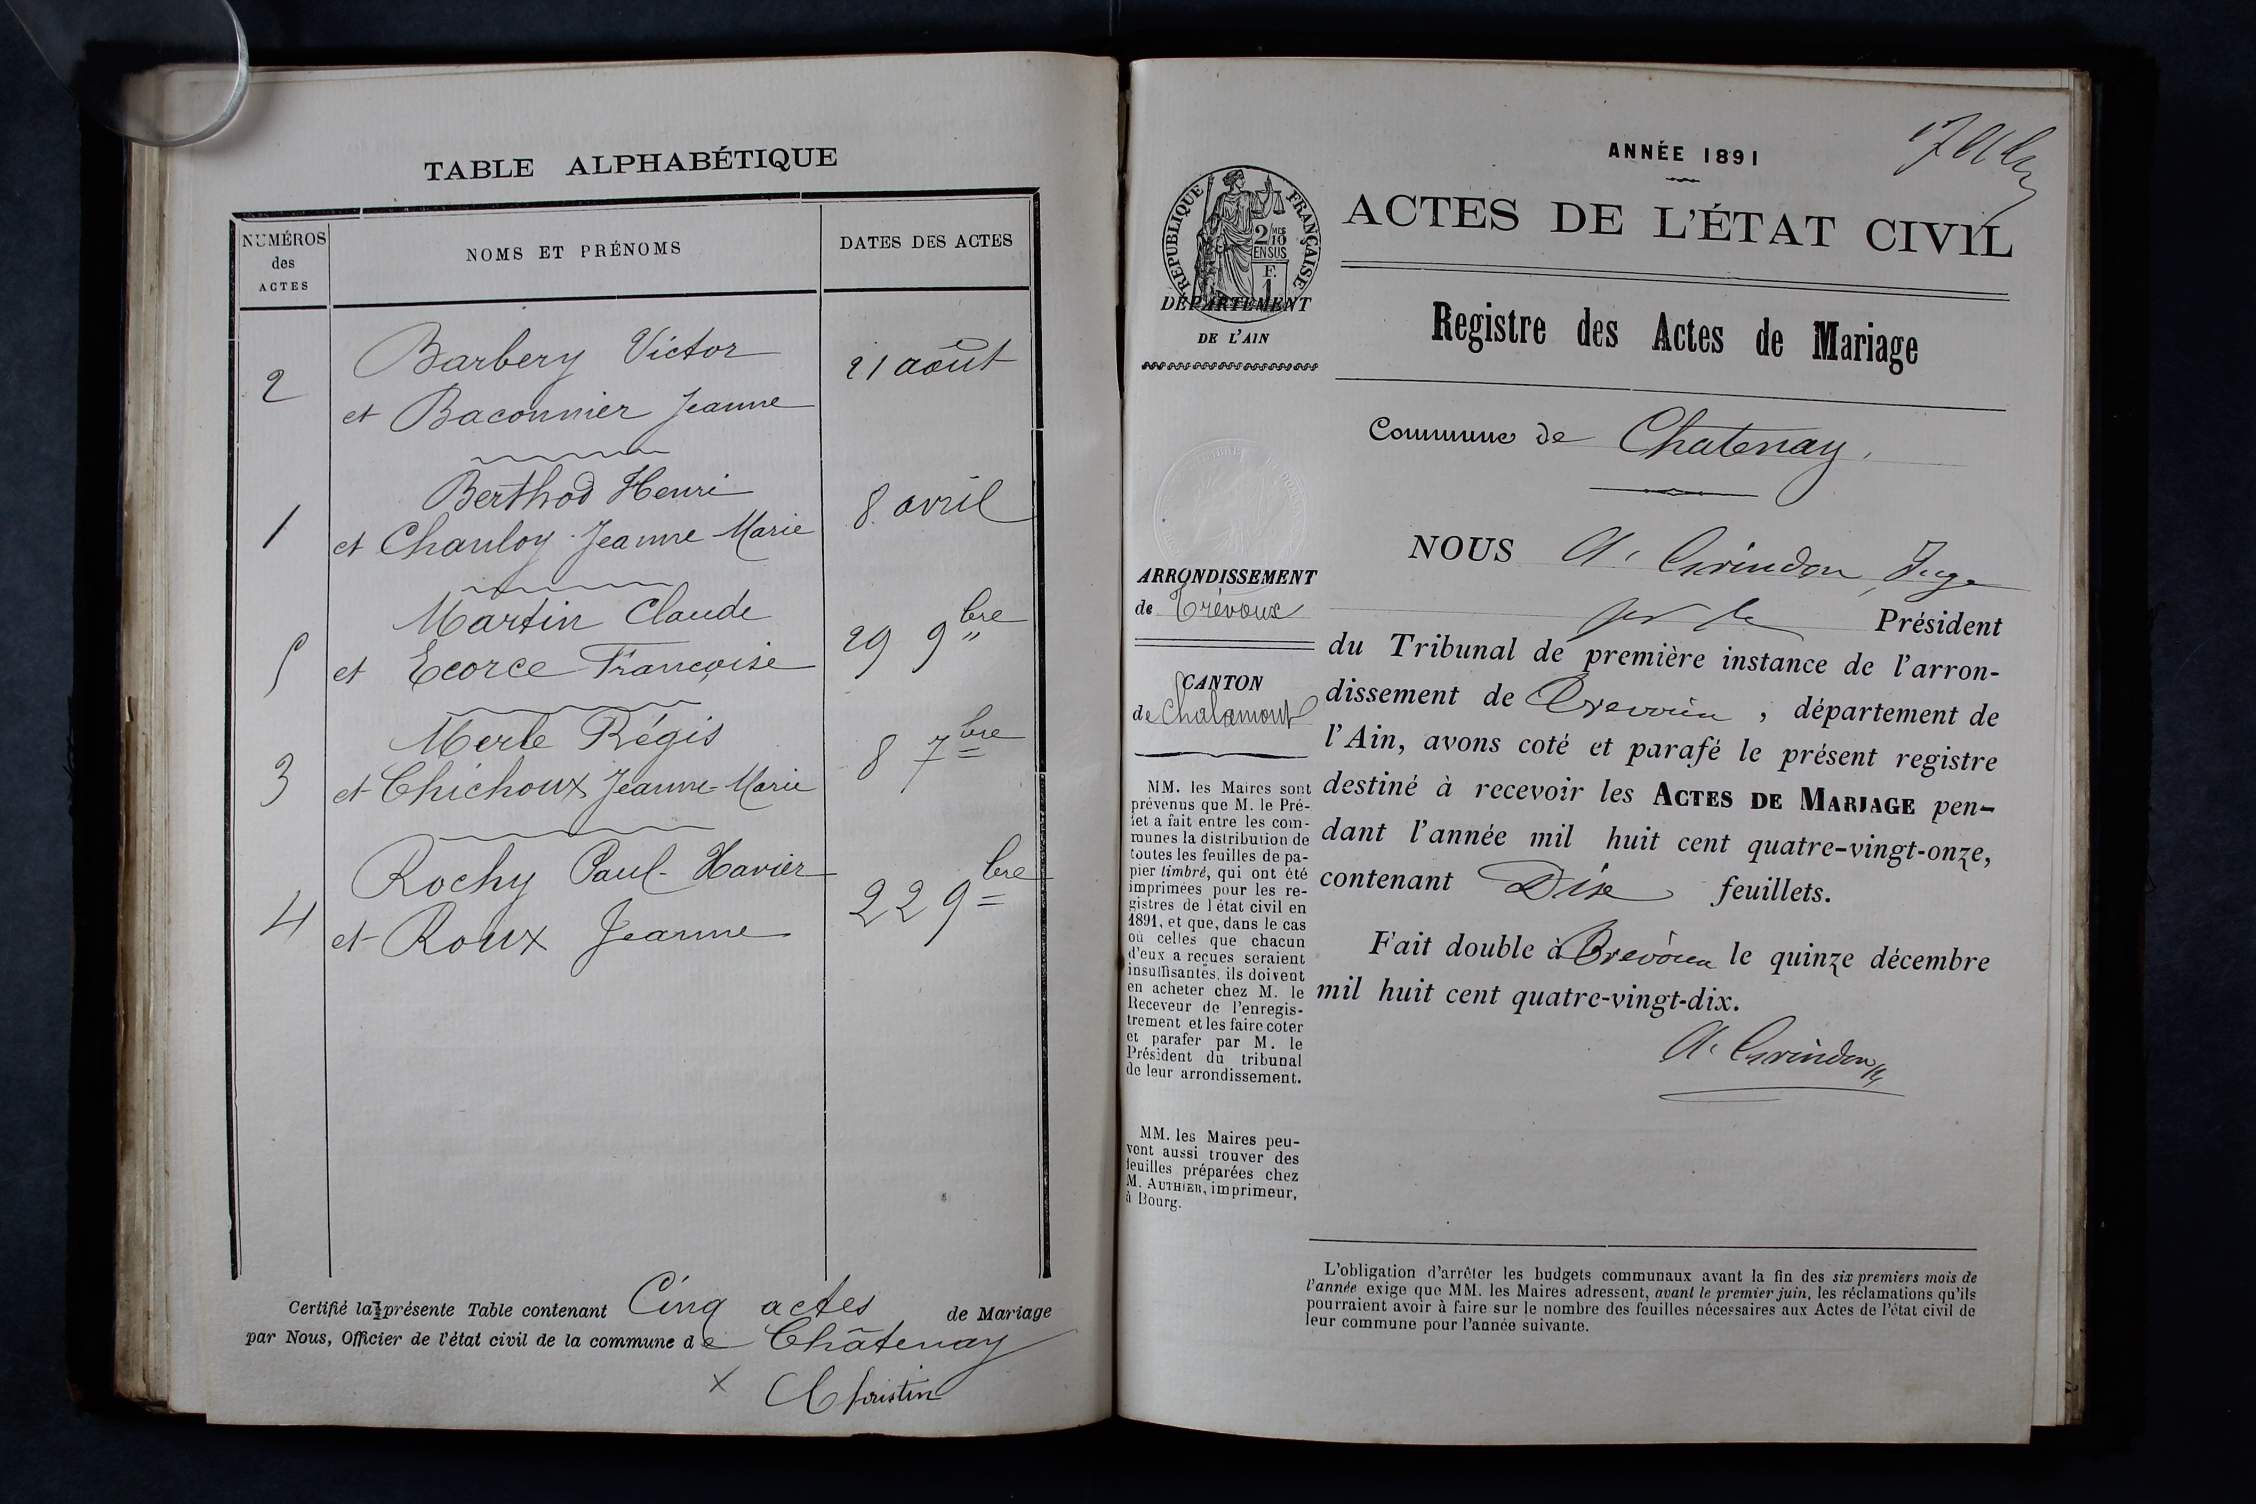 TABLE ALPHABÉTIQUE
NUMÉROS des ACTES
NOMS ET PRÉNOMS
DATES DES ACTES
2
Barbery Victor
et Baconnier Jeanne
21 août
1
Berthod Henri
et Chanloy Jeanne-Marie
8 avril
5
Martin Claude
et Ecorce Françoise
29 9bre
3
Merle Régis
et Chichoux Jeanne-Marie
8 7bre
4
Rochy Paul-Xavier
et Roux Jeanne
22 9bre
Certifié la présente Table contenant Cinq actes de Mariage
par Nous, Officier de l'état civil de la commune de Châtenay
Christin
ANNÉE 1891
RÉPUBLIQUE FRANÇAISE
2/10 MES
EN SUS
F.
1
ACTES DE L'ÉTAT CIVIL
DÉPARTEMENT
DE L'AIN
Registre des Actes de Mariage
Commune de Chatenay,
ARRONDISSEMENT
de Trévoux
CANTON
de Chalamont
MM. les Maires sont
prévenus que M. le Pré-
fet a fait entre les com-
munes la distribution de
toutes les feuilles de pa-
pier timbré, qui ont été
imprimées pour les re-
gistres de l'état civil en
1891, et que, dans le cas
où celles que chacun
d'eux a reçues seraient
insuffisantes, ils doivent
en acheter chez M. le
Receveur de l'enregis-
trement et les faire coter
et parafer par M. le
Président du tribunal
de leur arrondissement.
MM. les Maires peu-
vent aussi trouver des
feuilles préparées chez
M. AUTHIER, imprimeur,
à Bourg.
NOUS A. Grindon, Juge
pr le Président
du Tribunal de première instance de l'arron-
dissement de Trevoux, département de
l'Ain, avons coté et parafé le présent registre
destiné à recevoir les ACTES DE MARIAGE pen-
dant l'année mil huit cent quatre-vingt-onze,
contenant Dix feuillets.
Fait double à Trevoux le quinze décembre
mil huit cent quatre-vingt-dix.
A. Grindon
L'obligation d'arrêter les budgets communaux avant la fin des six premiers mois de
l'année exige que MM. les Maires adressent, avant le premier juin, les réclamations qu'ils
pourraient avoir à faire sur le nombre des feuilles nécessaires aux Actes de l'état civil de
leur commune pour l'année suivante.